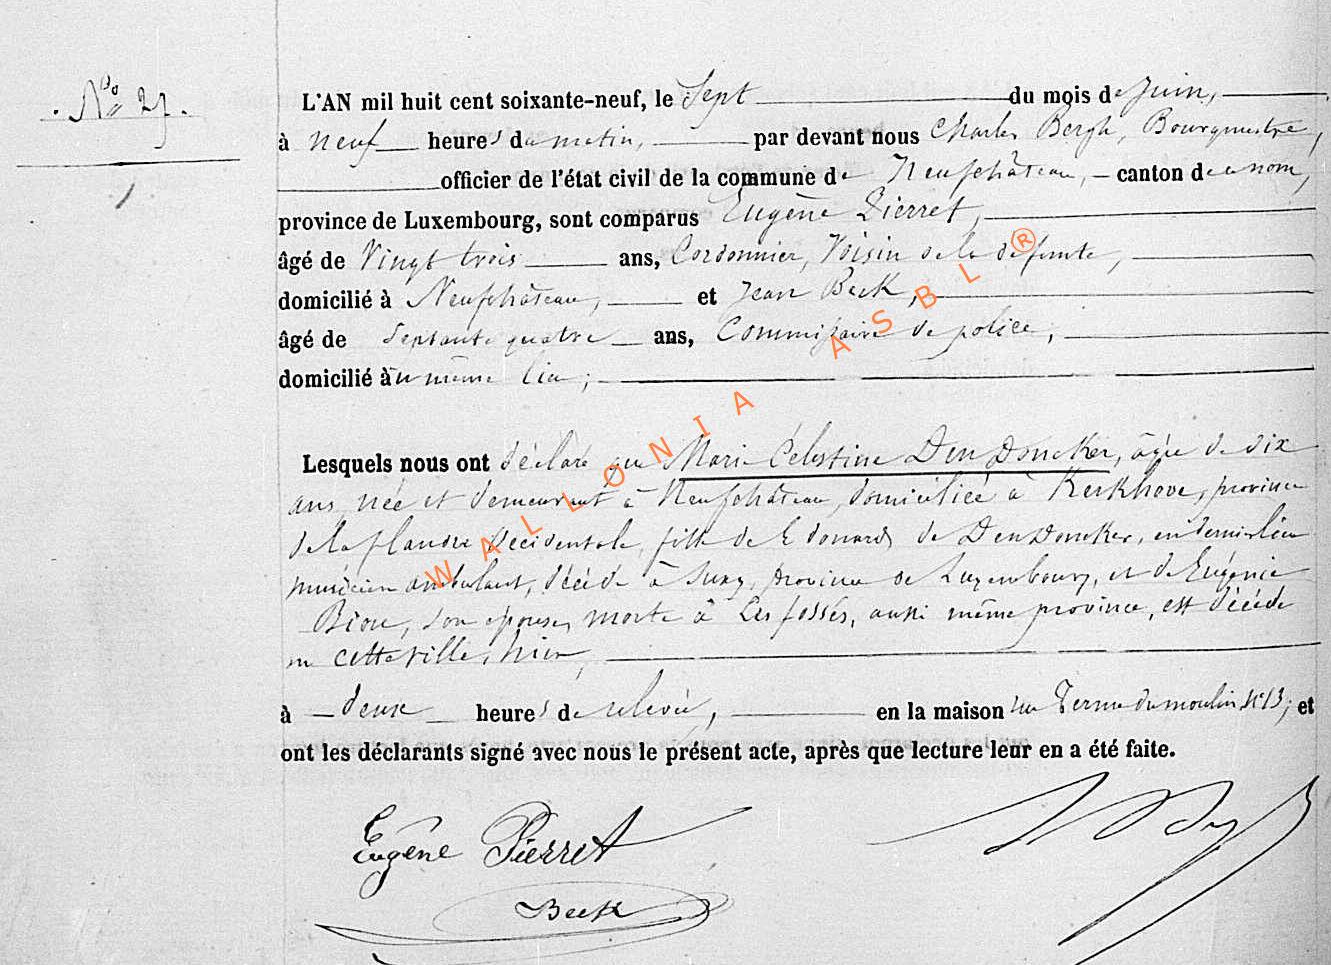 No 27.
L'AN mil huit cent soixante-neuf, le Sept du mois de Juin,
à neuf heures du matin, par devant nous Charles Bergh, Bourgmestre,
officier de l'état civil de la commune de Neufchâteau, canton de ce nom,
province de Luxembourg, sont comparus Eugène Pierret,
âgé de Vingt trois ans, Cordonnier, Voisin de la défunte,
domicilié à Neufchâteau, et Jean Beck,
âgé de Septante quatre ans, Commissaire de police;
domicilié au même lieu;
Lesquels nous ont déclaré que Marie Célestine Den Doncker, âgée de dix
ans, née et demeurant à Neufchâteau, domiciliée à Kerkhove, province
de la flandre Occidentale, fille de Edouard de Den Doncker, en dernier lieu
musicien ambulant, décédé à Suxy, province de Luxembourg, et de Eugénie
Biou, son épouse, morte à Les fossés, aussi même province, est décédée
en cette ville, hier,
à deux heures de relevée, en la maison rue Terme du moulin No 13; et
ont les déclarants signé avec nous le présent acte, après que lecture leur en a été faite.
Eugène Pierret
Beck
WALLONIA ASBL®